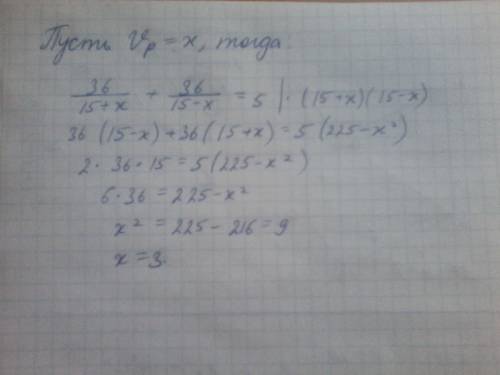 Пусть Vр = x, тогда:
36/(15+x) + 36/(15-x) = 5 | · (15+x)(15-x)
36(15-x)+36(15+x) = 5(225-x²)
2 · 36 · 15 = 5(225-x²)
6 · 36 = 225-x²
x² = 225 - 216 = 9
x = 3.